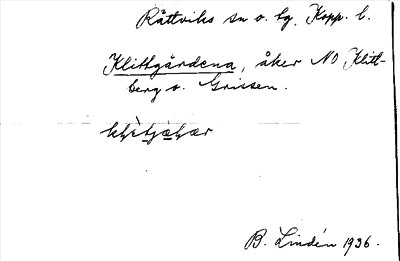 Rättviks sn o. tg. Kopp. l.
Klittgärdena, åker NO Klitt-
berg o. Grissen.
B. Lindén 1936.